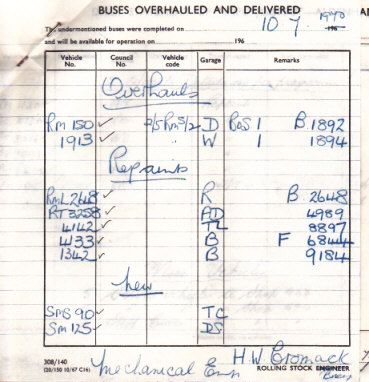 BUSES OVERHAULED AND DELIVERED
The undermentioned buses were completed on 10 7 1970 196
and will be available for operation on 196
Vehicle No. Council No. Vehicle code Garage Remarks
Overhauls
Rm 150 ✓ 2/5Rm5/2 D B 1892
1913 ✓ " W 1 1894
Repaints
RmL2648 ✓ R B 2648
RT3258 ✓ AD 4989
4142 ✓ TL 8897
433 ✓ B F 6844
1342 ✓ B 9184
New
SmS 90 ✓ TC
Sm 125 ✓ DS
308/140
(20/150 10/67 C16) Mechanical Eng H.W Cromack
ROLLING STOCK ENGINEER